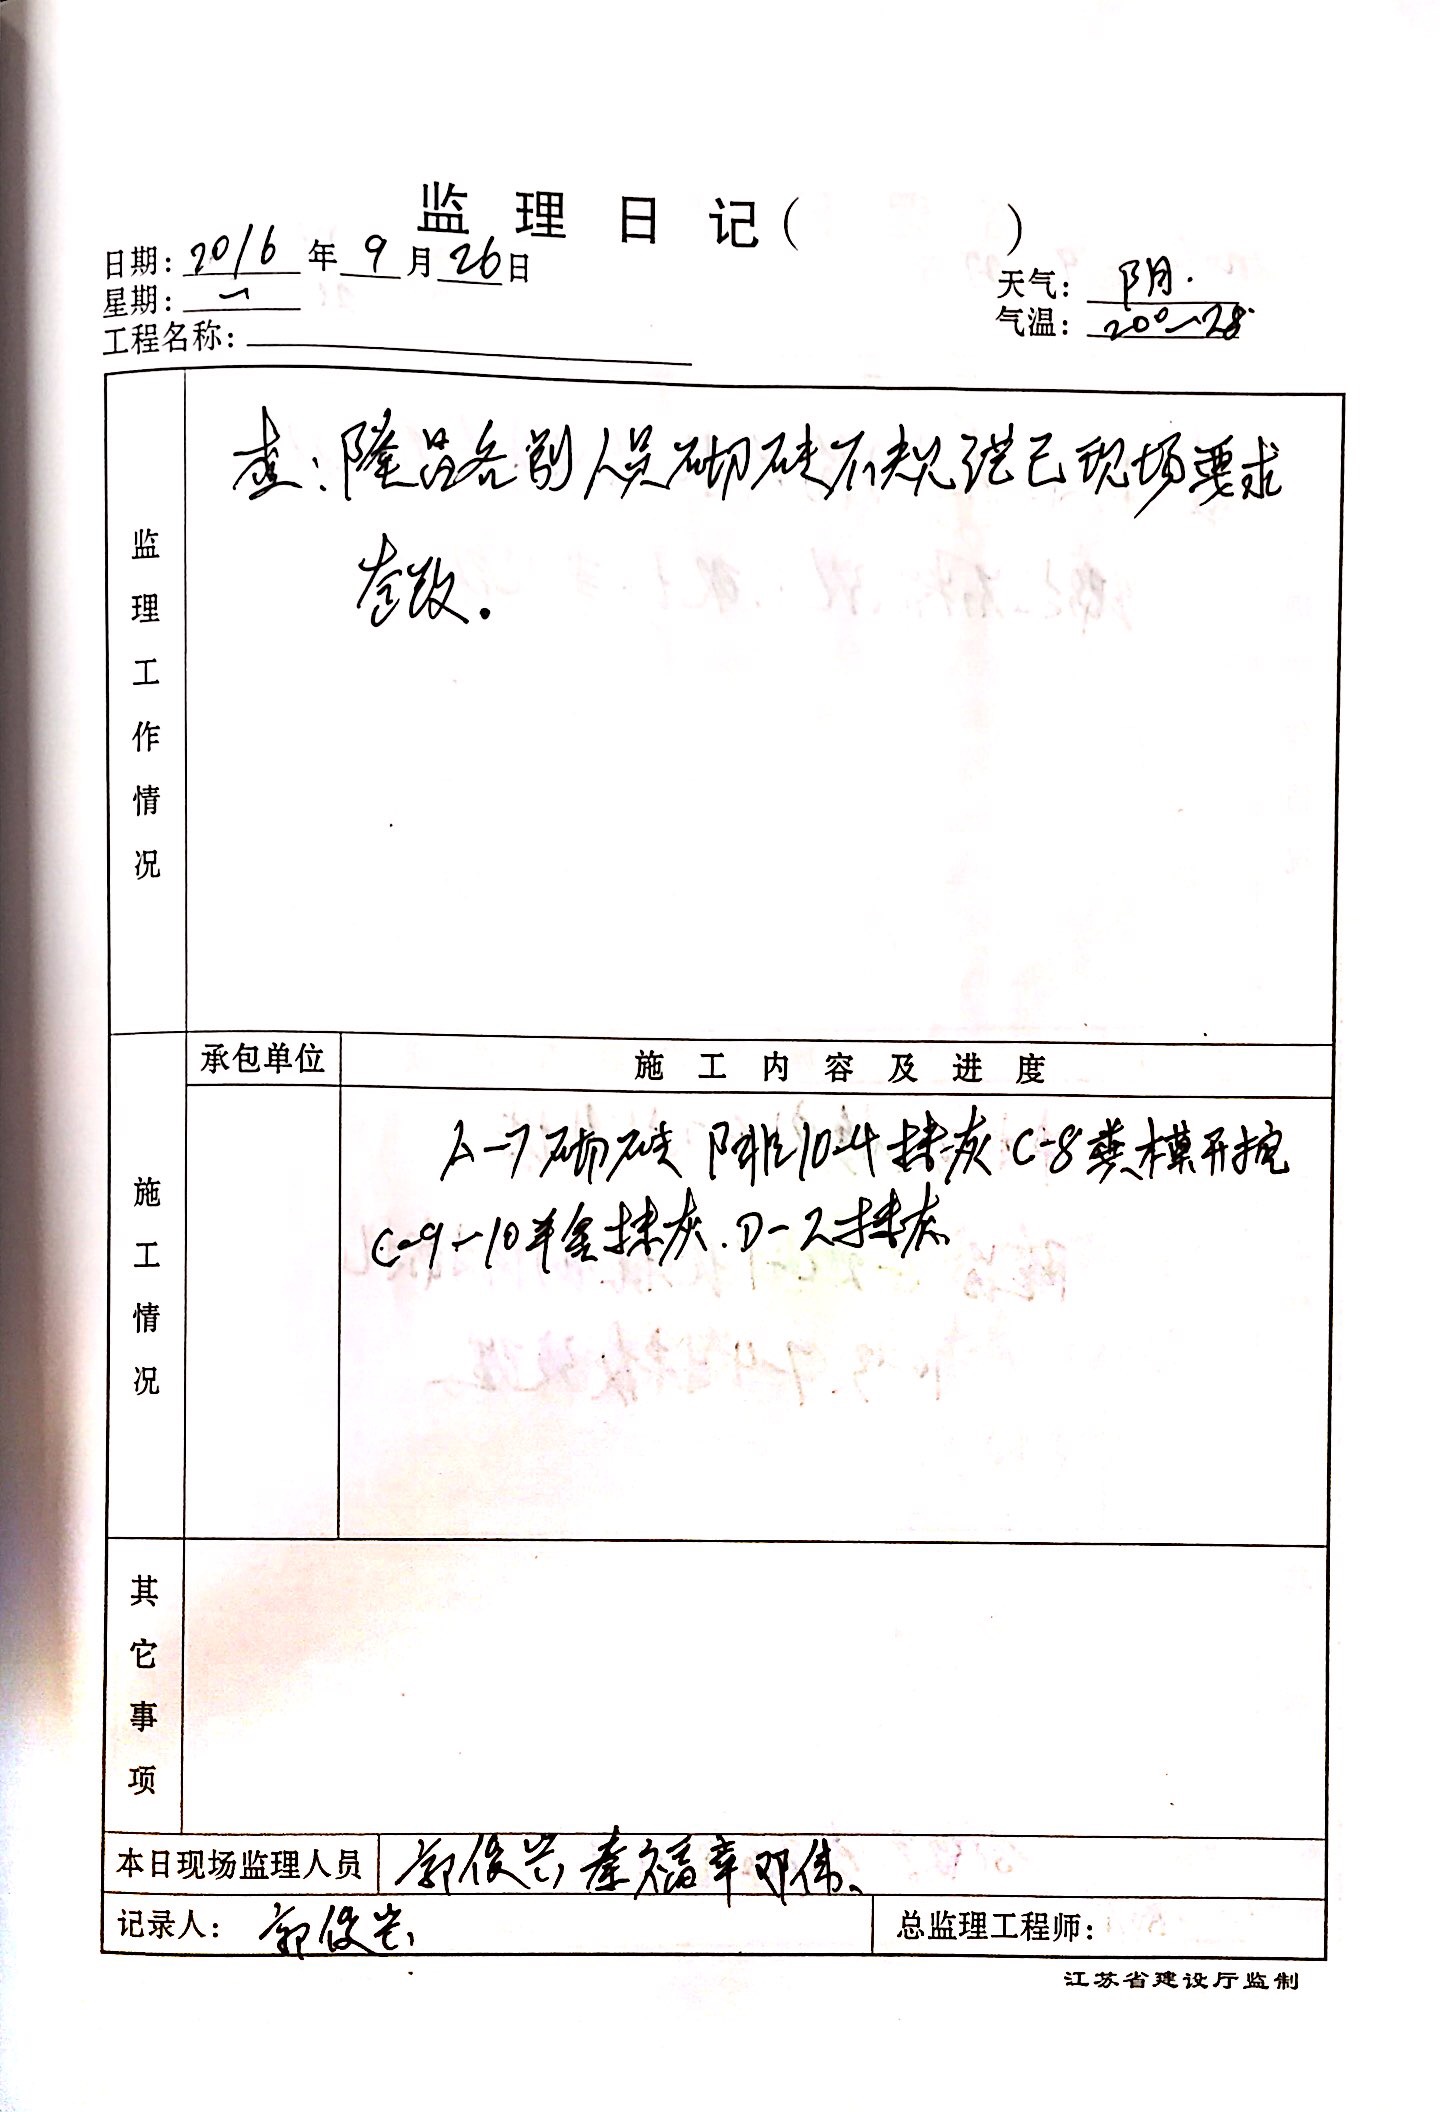 监理日记（ ）
日期：2016年9月26日
星期：一
天气：阴.
气温：20°~28°
工程名称：
监理工作情况
查：隆昌各别人员砌砖不规范已现场要求
整改。
承包单位
施工内容及进度
施工情况
A-7砌砖 10-4抹灰 C-8 模开挖
C-9~10 抹灰.D-2抹灰
其它事项
本日现场监理人员
郭俊兴 秦福章 邓伟、
记录人：郭俊兴
总监理工程师：
江苏省建设厅监制